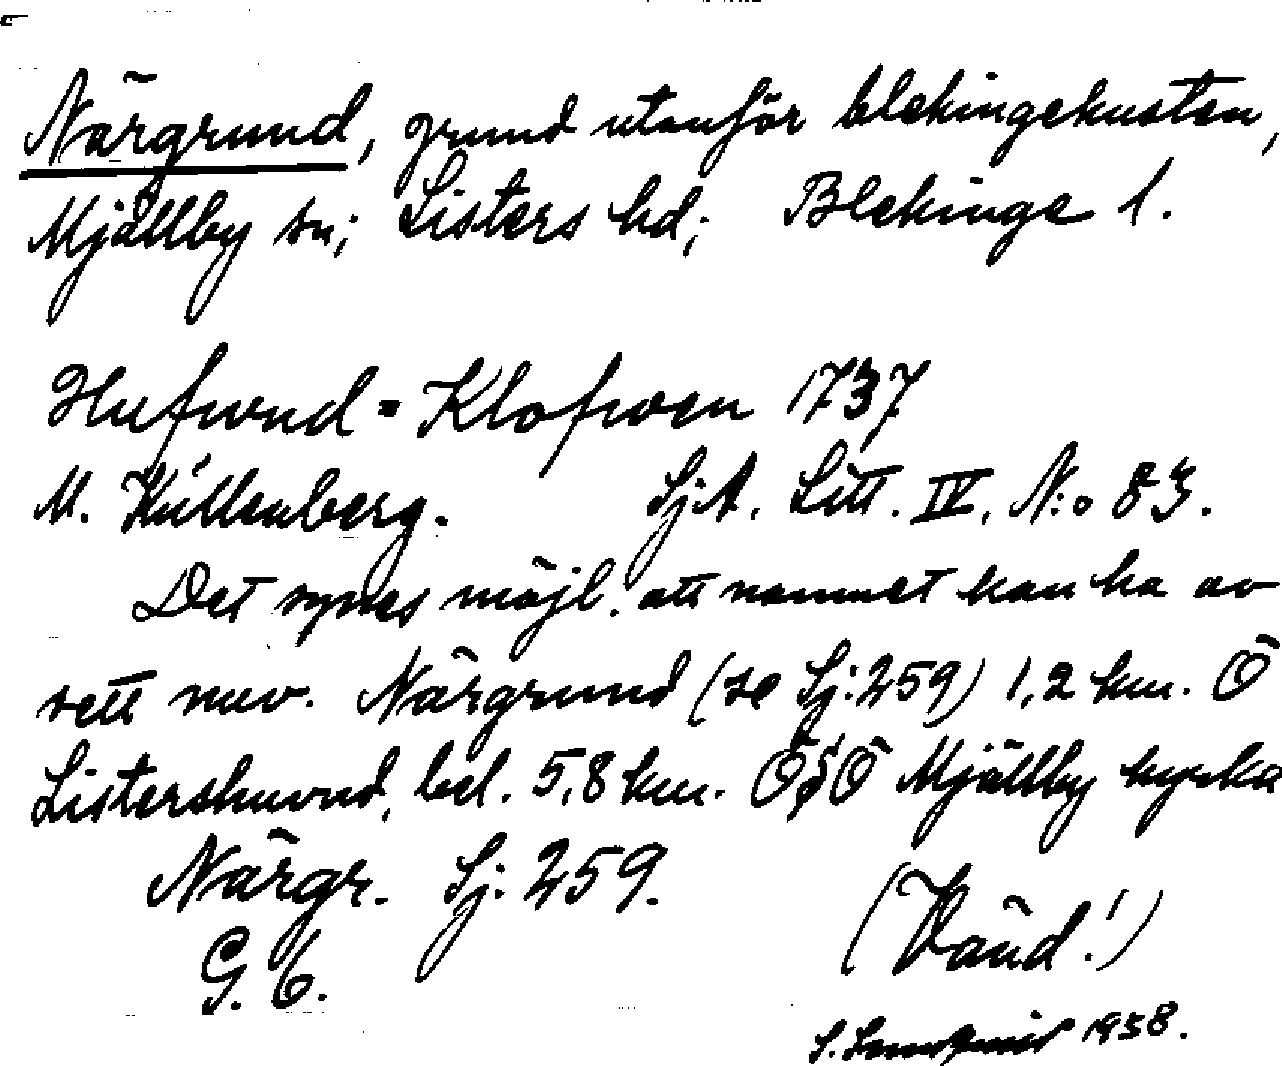 Närgrund, grund utanför blekingekusten,
Mjällby sn; Listers hd; Blekinge l.
Hufwud = Klofwen 1737
M. Küllenberg. Sj:A. Litt. IV. N:o 83.
Det synes möjl. att namnet kan ha av
sett nuv. Närgrund (se Sj:259) 1,2 km. Ö
Listershuvud, bel. 5,8 km. ÖSÖ Mjällby kyrka
Närgr. Sj: 259.
G. C. (Vänd!)
S. 1938.